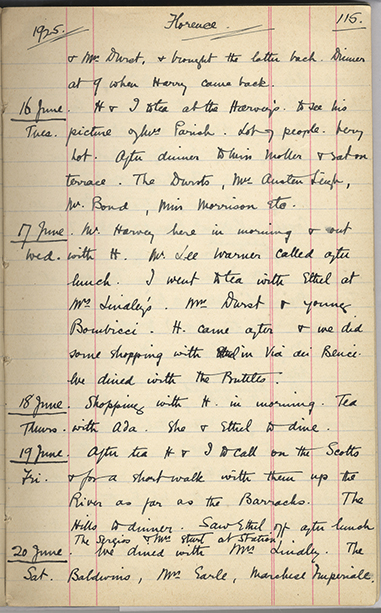 1925. Florence. 115.
& Mrs Durst, & brought the latter back. Dinner
at 9 when Harry came back.
16 June. H & I to tea at the Harveys to see his
Tues. picture of Mrs Parish. Lot of people. Very
hot. After dinner to Miss Moller & sat on
terrace. The Dursts, Mrs Austen Leigh,
Mr Bond, Miss Morrison etc.
17 June. Mr Harvey here in morning & out
Wed. with H. Mr Lee Warner called after
lunch. I went to tea with Ethel at
Mrs Lindley's. Mrs Durst & young
Bombicci. H. came after & we did
some shopping with in Via dei Benci.
We dined with the
18 June. Shopping with H. in morning. Tea
Thurs. with Ada. She & Ethel to dine.
19 June. After tea H & I to call on the Scotts
Fri. & for a short walk with them up the
River as far as the Barracks. The
Hills to dinner. Saw Ethel off after lunch
The & Mrs at Station.
20 June. We dined with Mrs Lindley. The
Sat. Baldwins, Mrs Earle, Marchese Imperiale,